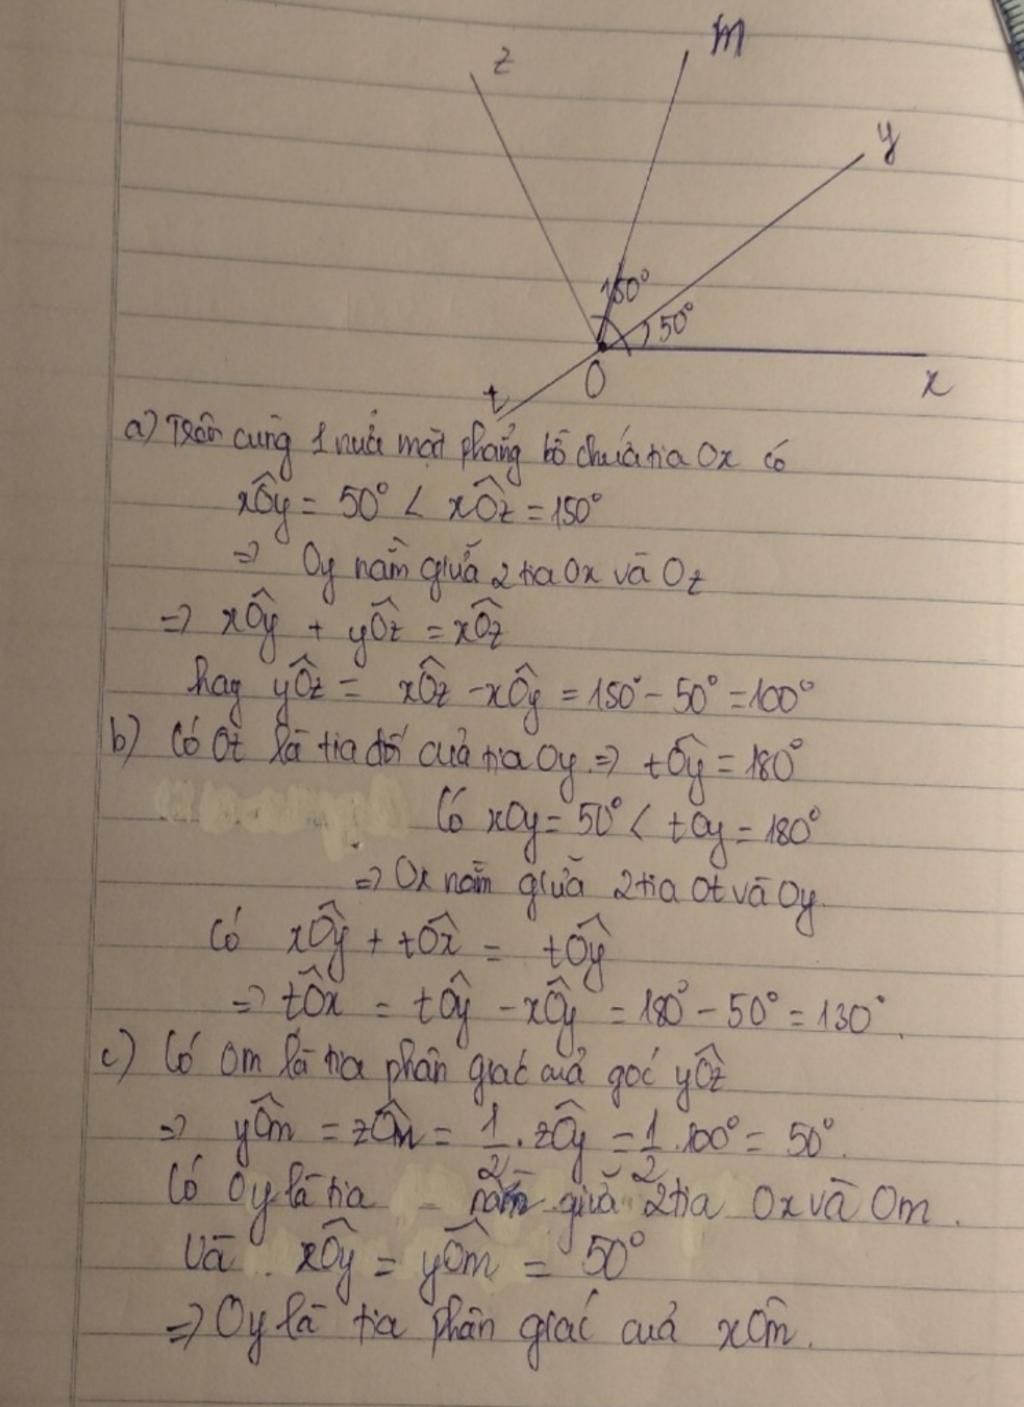 z
m
y
150°
50°
O
x
t
a) Trên cùng 1 nửa mặt phẳng bờ chứa tia Ox có
xÔy = 50° < xÔz = 150°
=> Oy nằm giữa 2 tia Ox và Oz
=> xÔy + yÔz = xÔz
hay yÔz = xÔz - xÔy = 150° - 50° = 100°
b) Có Ot là tia đối của tia Oy => tÔy = 180°
Có xOy = 50° < tOy = 180°
=> Ox nằm giữa 2 tia Ot và Oy.
Có xÔy + tÔx = tÔy
=> tÔx = tÔy - xÔy = 180° - 50° = 130°.
c) Có Om là tia phân giác của góc yÔz
=> yÔm = zÔm = 1/2 . zÔy = 1/2 . 100° = 50°.
Có Oy là tia nằm giữa 2 tia Ox và Om.
Và xÔy = yÔm = 50°
=> Oy là tia phân giác của xÔm.